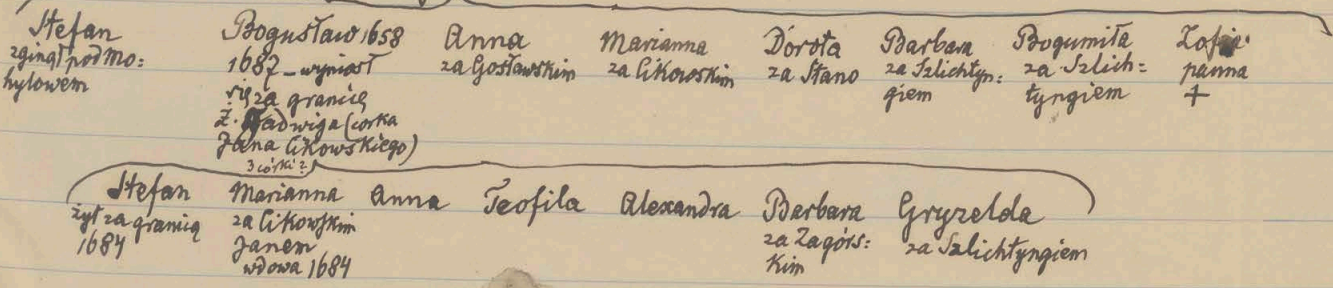 Stefan
zginął pod Mo=
hylowem
Bogusław 1658
1687 – wyniósł
się za granicę
ż. Jadwiga (córka
Jana Cikowskiego)
3 córki?
Anna
za Gosławskim
Marianna
za Cikowskim
Dorota
za Stano
Barbara
za Szlichtyn=
giem
Bogumiła
za Szlich=
tyngiem
Zofia
panna
+
Stefan
żył za granicą
1684
Marianna
za Cikowskim
Janem
wdowa 1684
Anna
Teofila
Alexandra
Barbara
za Zagórs=
kim
Gryzelda
za Szlichtyngiem